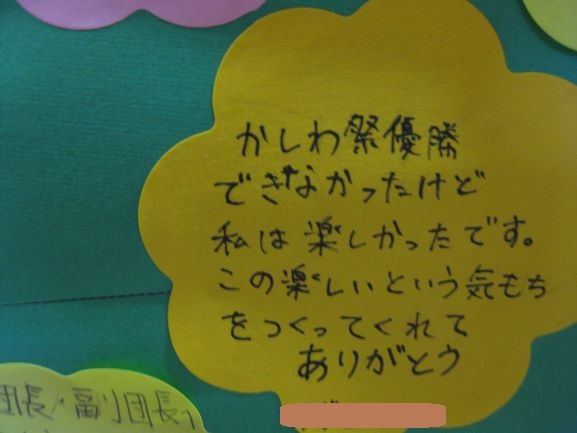 かしわ祭優勝
できなかったけど
私は楽しかったです。
この楽しいという気もち
をつくってくれて
ありがとう
団長・副団長、